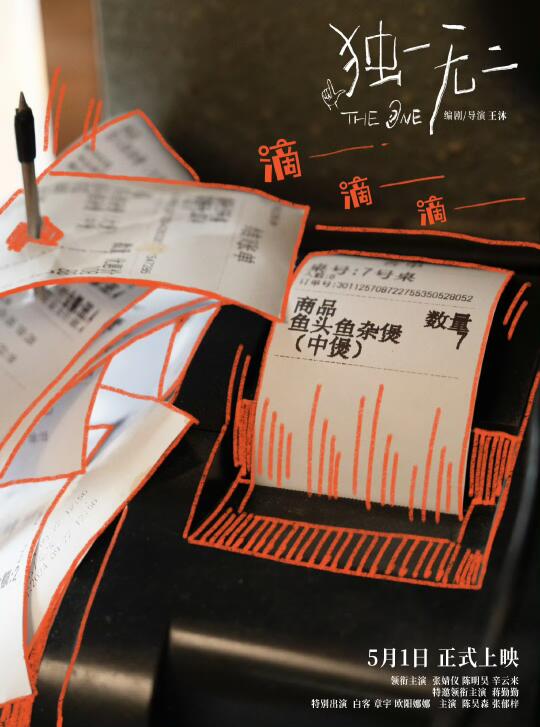 独一无二
THE ONE
编剧/导演 王沐
滴一
滴一
滴一
结账单
桌号:7号桌
人数:0
订单号:3011257087227553505280​52
商品 数量
鱼头鱼杂煲 7
(中煲)
5月1日 正式上映
领衔主演 张婧仪 陈明昊 辛云来
特邀领衔主演 蒋勤勤
特别出演 白客 章宇 欧阳娜娜 主演 陈昊森 张郁梓